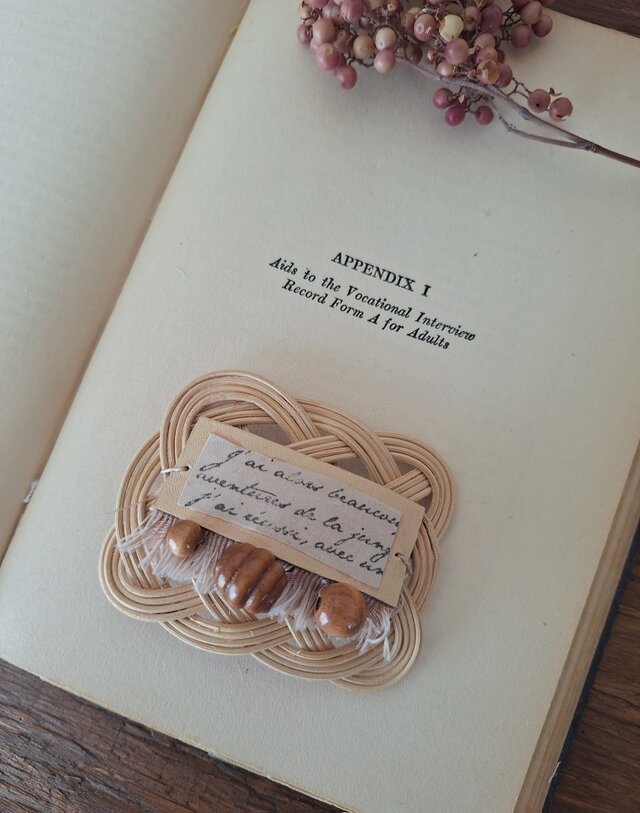 APPENDIX I
Aids to the Vocational Interview
Record Form A for Adults
J'ai alors beaucou
aventures de la jung
J'ai réussi, avec un